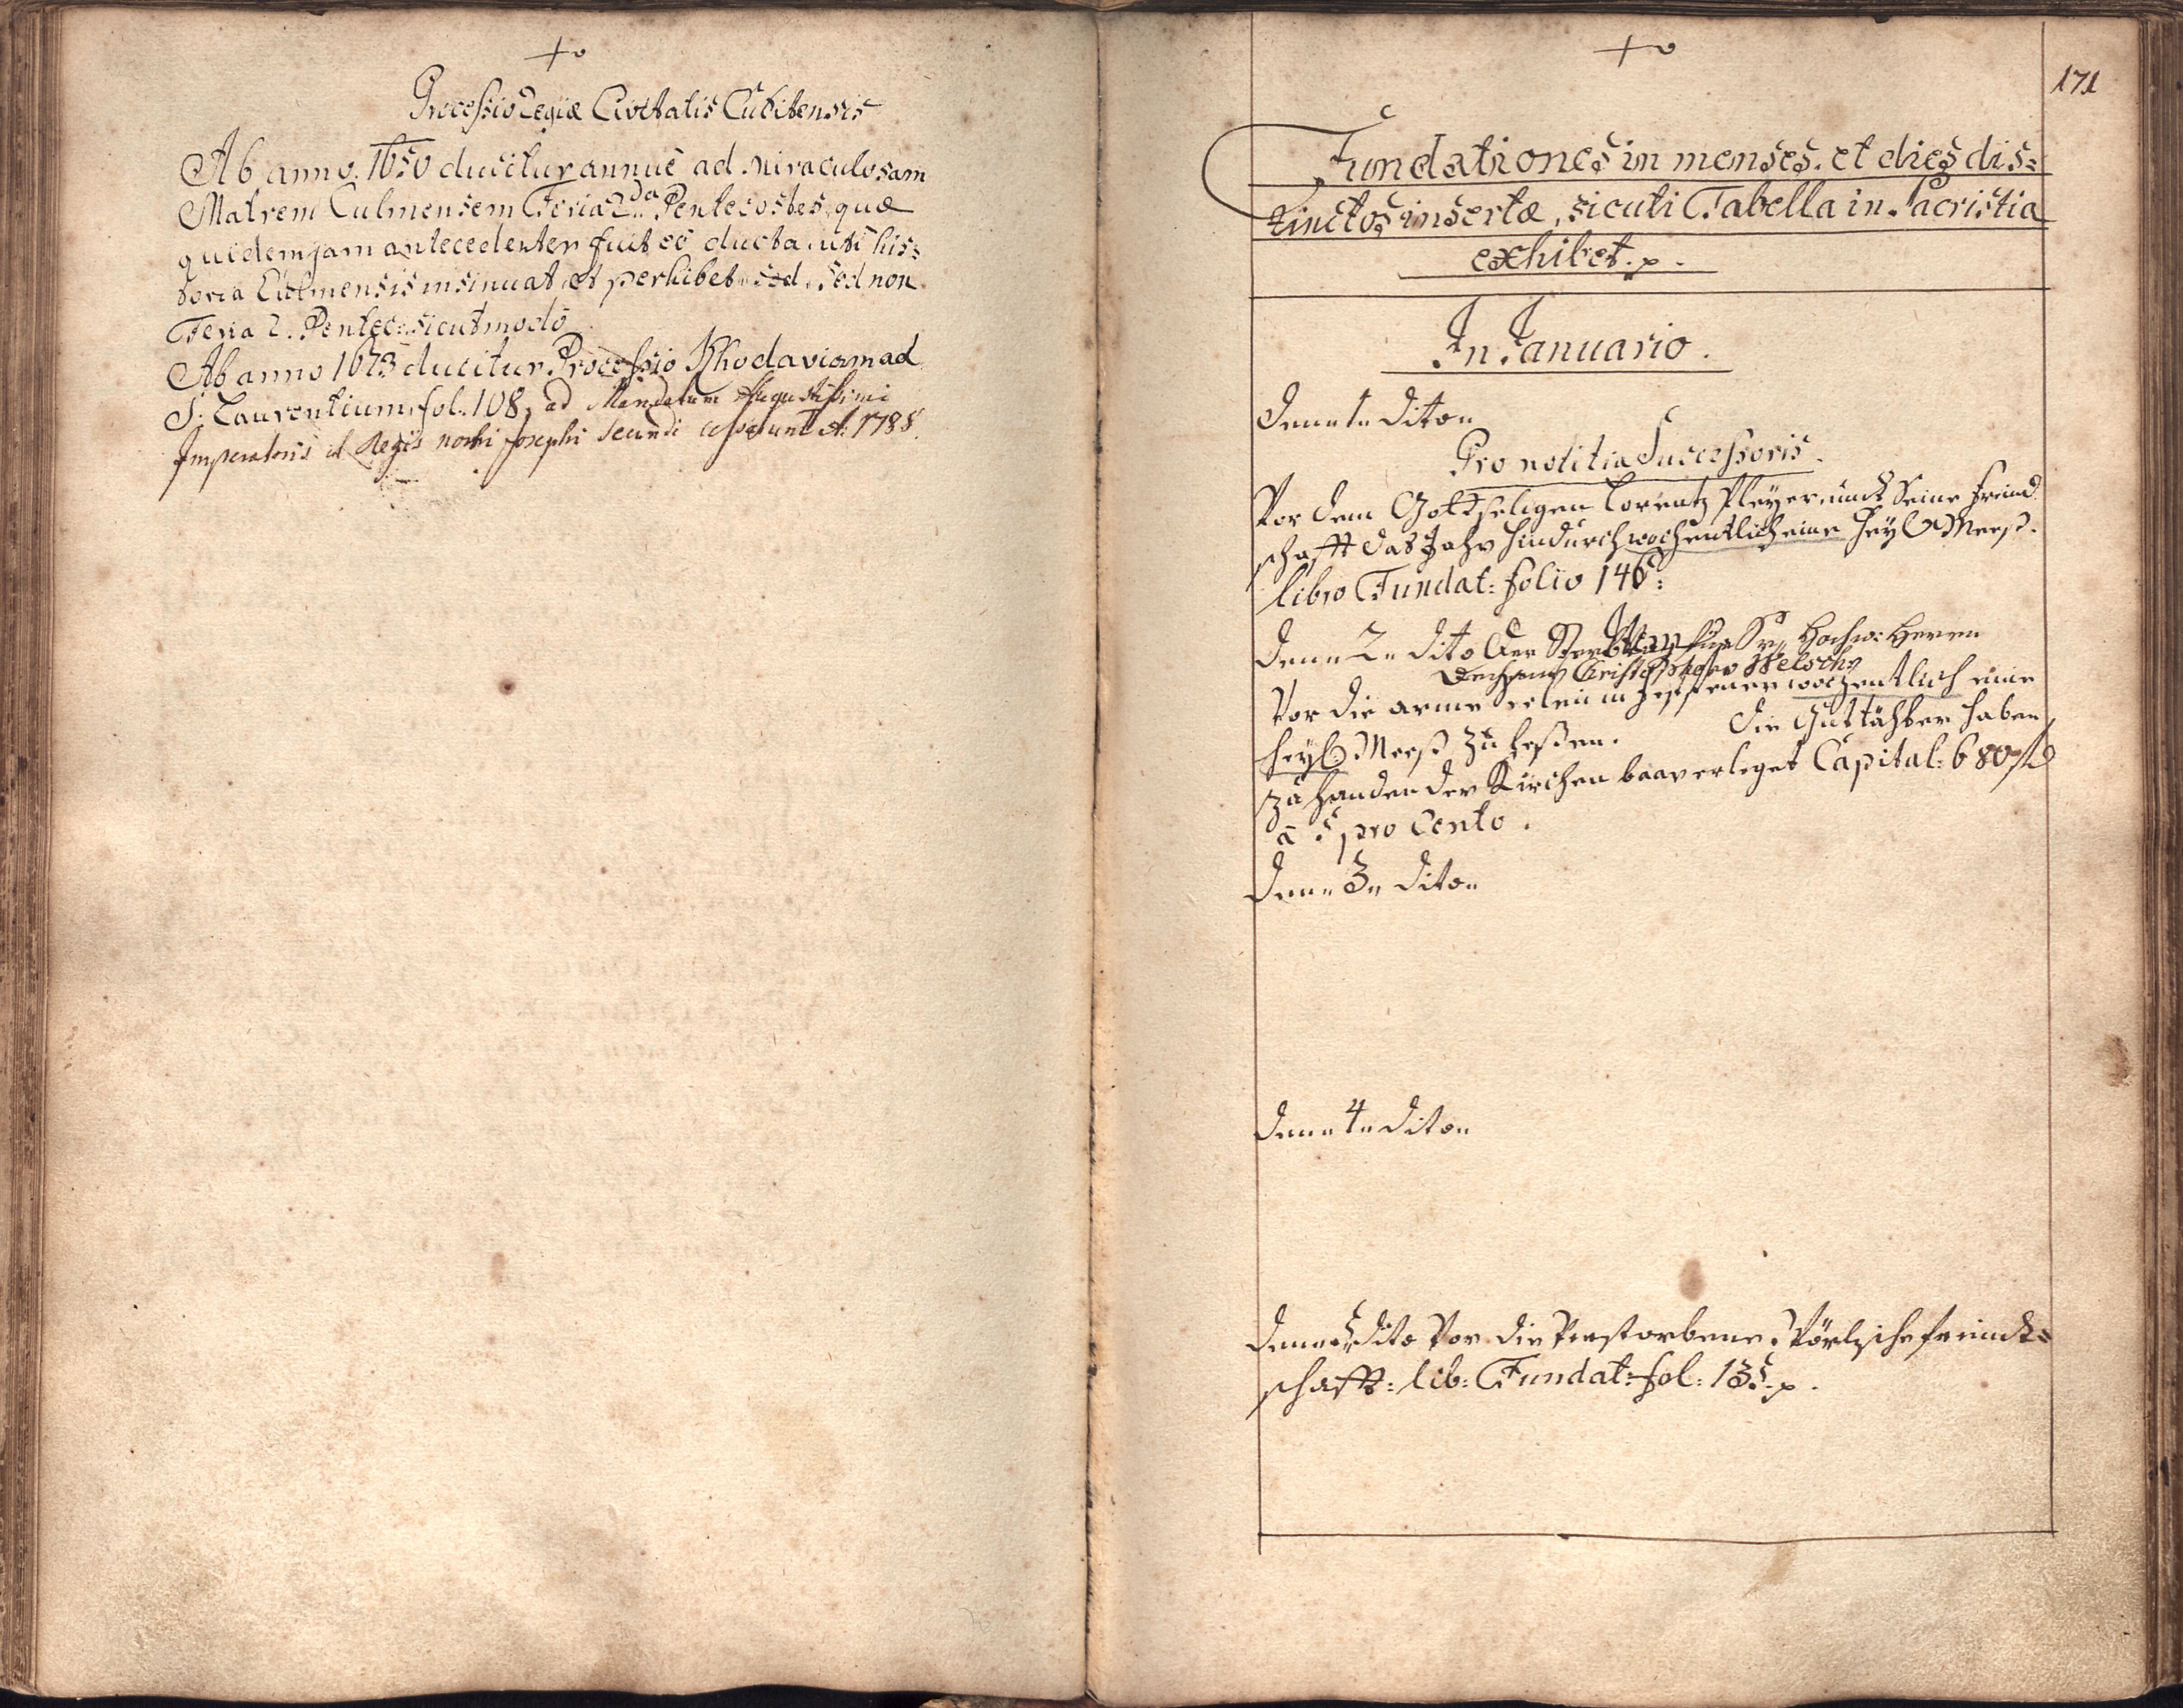 Processio Regiæ Civitatis Cubitensis
Ab anno 1650 ducitur annuè ad Miraculosam
Matrem Culmensem Feria 2da Pentecostes, quæ
quidem jam antecedenter fuit eò ducta, uti his=
toria Culmensis insinuat et perhibet, sed, sed non
Feria 2. Pentec: sicut modò
Ab anno 1673 ducitur Processio Khodaviam ad
S. Laurentium, fol. 108, ad Mandatum Augustissimi
Imperatoris et Regis nostri Josephi Secundi A: 1788.
171
Fundationes in menses et dies dis=
tinctos insertæ, sicuti Tabella in Sacristia
exhibet.
In Januario.
Denn 1n Dito
Pro notitia Successoris.
Vor dem Gottseligen Lorentz Pleyer und Seine freind
schafft das Jahr hindurch wochentlich eine heyl Mess.
libro Fundat: folio 146:
Denn 2n Dito Der Sterbtag Sr Hochw: Herrn
Dechant Christophoro Welsch
Vor die arme seelen in fegfeuer wochentlich eine
heyl Mess zu lesen. Die Gutthäter haben
zu handen der Kirchen baar erleget Capital: 680 fl
à 5 pro Cento.
Denn 3n Dito
Denn 4n Dito
Denn 5n Dito Vor die Verstorbene freund=
schafft: lib: Fundat: fol: 135.